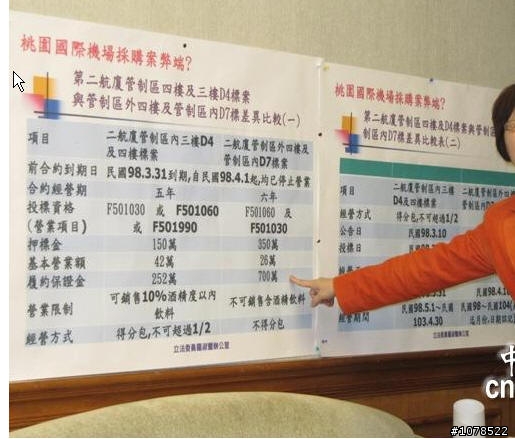 桃園國際機場採購案弊端?
第二航廈管制區四樓及三樓D4標案
與管制區外四樓及管制區內D7標差異比較(一)
項目 二航廈管制區內三樓D4及四樓標案 二航廈管制區外四樓及管制區內D7標案
前合約到期日 民國98.3.31到期,自民國98.4.1起,均已停止營業
合約經營期 五年 六年
投標資格(營業項目) F501030 或 F501060 或 F501990 F501060 及 F501030
押標金 150萬 350萬
基本營業額 42萬 26萬
履約保證金 252萬 700萬
營業限制 可銷售10%酒精度以內飲料 不可銷售含酒精飲料
經營方式 得分包,不可超過1/2 不得分包
立法委員羅淑蕾辦公室
桃園國際機場採購案弊端?
第二航廈管制區四樓及D4標案與管制
區內D7標差異比較表(二)
項目 二航廈管制區內三樓D4及四樓標案 二航廈管制區外四樓
經營方式 得分包,不可超過1/2
公告日 民國98.3.10
投標日
經營期間 民國98.5.1~民國103.4.30
立法委員羅淑蕾辦公室
中
cn
#1078522